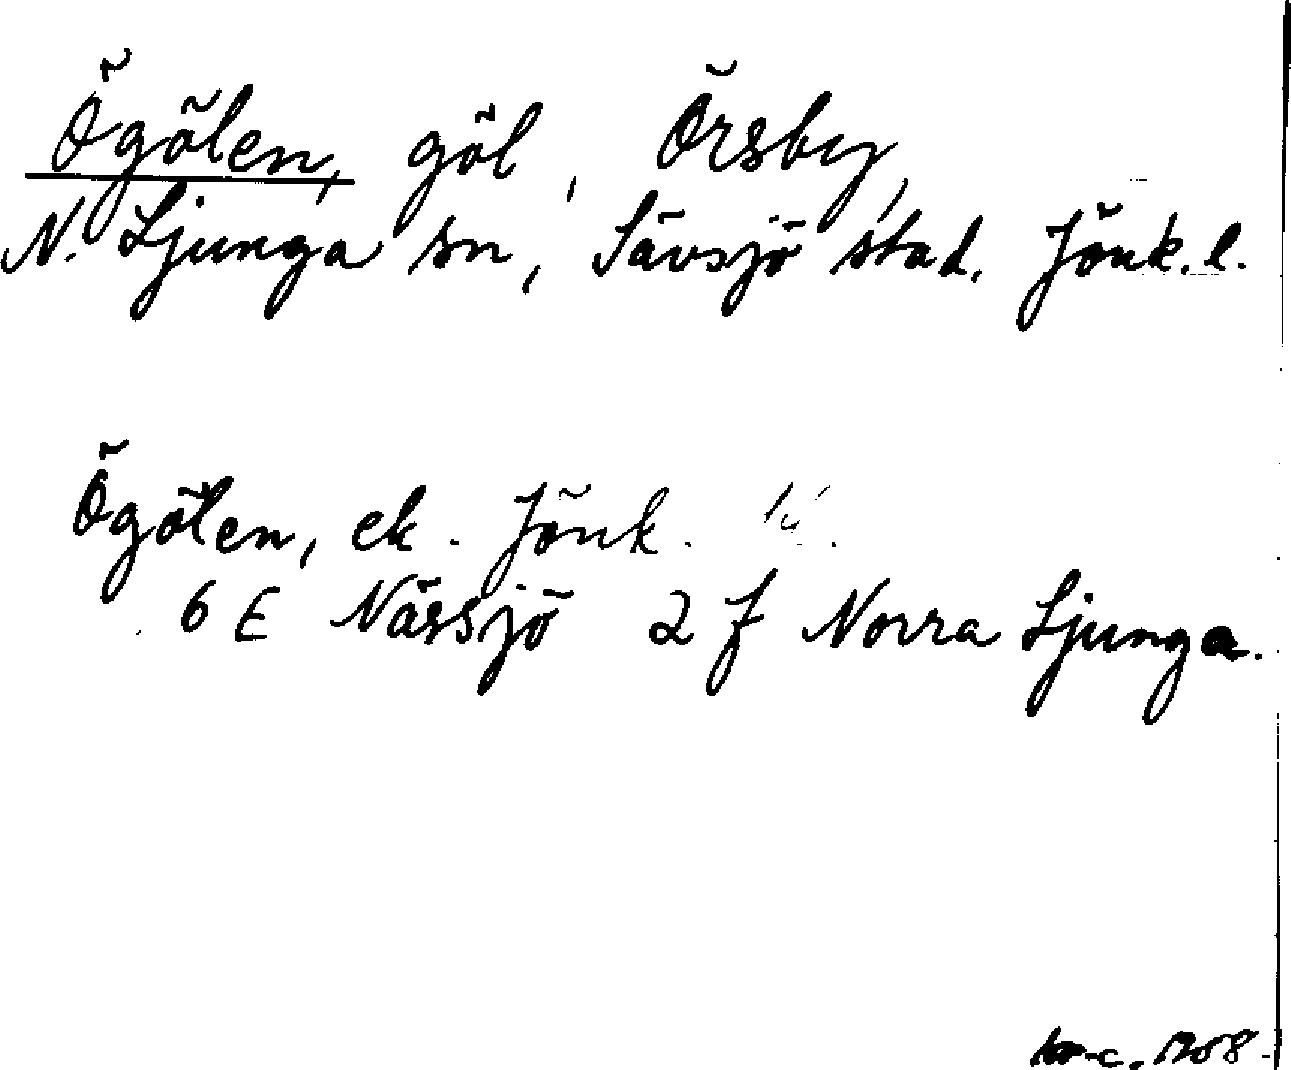 Ögölen, göl, Örsby,
N. Ljunga sn, Sävsjö stad, Jönk. l.
Ögölen, ek. Jönk.
6 E Nässjö 2 f Norra Ljunga.